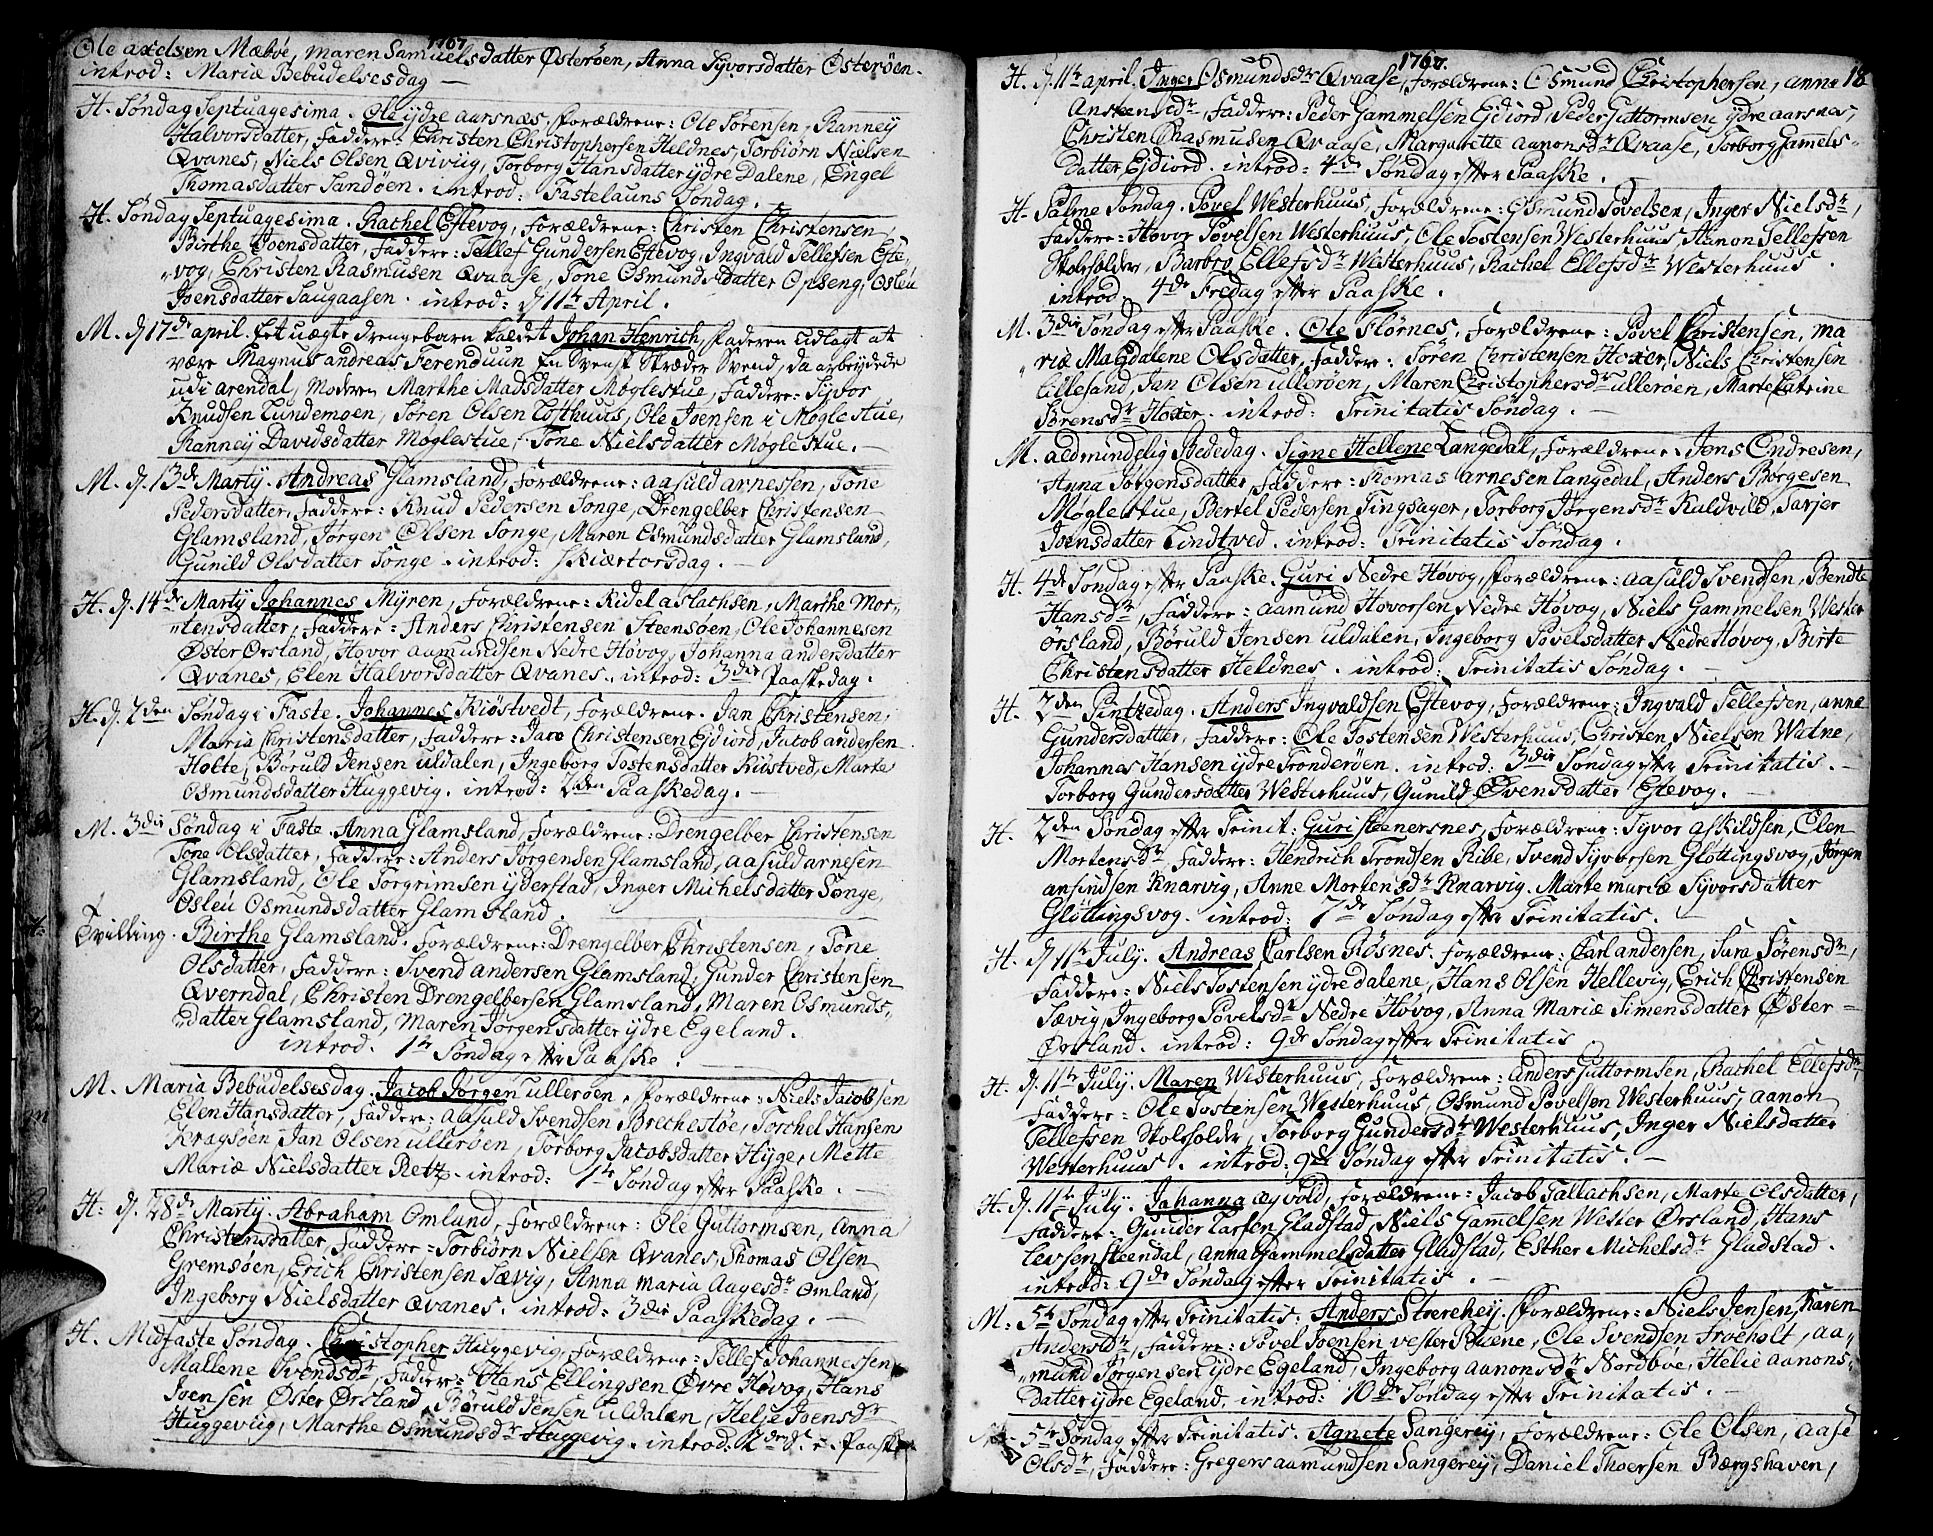 1767
Ole axelsen Mæbøe, maren Samuelsdatter Østerøen, Anna Syvorsdatter Østerøen.
introd: Mariæ Bebudelsesdag —
H. Søndag Septuagesima. Ole ydre aarsnæs, forældrene: Ole Sørensen, Ranney
Halvorsdatter, faddere: Christen Christophersen Heldnes, Torbiørn Nielsen
Qvanes, Niels Olsen Qvivig, Torborg Hansdatter ydre Dalene, Engel
Thomasdatter Sandøen. introd: Fastelauns Søndag.
H. Søndag Septuagesima. Rachel Eftevog, forældrene: Christen Christensen,
Birthe Joensdatter, faddere: Tellef Gundersen Eftevog, Ingvald Tellefsen Efte-
„vog, Christen Rasmusen Qvaase, Tone Osmundsdatter Opseng, Osleu
Joensdatter Saugaasen. introd: d 11te April.
M. d 17de april. Et uægte drengebarn kaldet Johan Henrich, faderen udlagt at
være Magnus andreas Ferenduun En Svensk Skræder Svend, da arbeydede
udi arendal, moderen Marthe Madsdatter Moglestue, faddere: Syvor
Knudsen Lundemoen, Søren Olsen Lofthuus, Ole Joensen i Moglestue,
Ranney Davidsdatter Moglestue, Tone Nielsdatter Moglestue. —
M. d. 13de Marty. Andreas Glamsland, forældrene: aasuld arnessen, Tone
Pedersdatter, faddere: Knud Pedersen Songe, Drengelber Christensen
Glamsland, Jørgen Olsen Songe, Maren Osmundsdatter Glamsland,
Gunild Olsdatter Songe. introd: Skiærtorsdag. —
H. d. 14de Marty Johannes Myren, forældrene: Kidel aslachsen, Marthe Mor-
„tensdatter, faddere: Anders Christensen Steensøen, Ole Johannesen
Øster Ørsland, Hovor aamundsen Nedre Høvog, Johanna andersdatter
Qvanes, Elen Halvorsdatter Qvanes. introd: 3die Paaskedag.
H. d. 2den Søndag i Faste. Johannes Kiøstvedt, forældrene. Jan Christensen,
Maria Christensdatter, faddere: Jaco Christensen Ejdiord, Jacob andersen
Holte, Børuld Jensen uldalen, Ingeborg Tostensdatter Kiøstved, Marta
Osmundsdatter Huggevig. introd: 2den Paaskedag. —
M. 3die Søndag i Faste. Anna Glamsland, forældrene: Drengelber Christensen
Tone Olsdatter, faddere: Anders Jørgensen Glamsland, aasuld arnesen
Glamsland, Ole Torgrimsen yderstad, Inger Michelsdatter Songe,
Osleu Osmundsdatter Glamsland.
Tvilling. Birthe Glamsland. forældrene: Drengelber Christensen, Tone
Olsdatter, faddere: Svend andersen Glamsland, Gunder Christensen
Qverndal, Christen Drengelbersen Glamsland, Maren Osmunds-
„datter Glamsland, Maren Jørgensdatter ydre Egeland.
introd. 1te Søndag efter Paaske.
M. Maria Bebudelsesdag. Jacob Jørgen ullerøen, forældrene: Niels Jacobsen
Elen Hansdatter, faddere: aasuld Svendsen Brechestøe, Torchel Hansen
Kragsøen Jan Olsen ullerøen, Torborg Jacobsdatter Hyger, Mette
Mariæ Nielsdatter Retz. introd: 1te Søndag efter Paaske.
H: d. 28de Marty. Abraham Omlund, forældrene: Ole Guttormsen, anna
Christensdatter, faddere: Torbiørn Nielsen Qvanes, Thomas Olsen
Gremsøen, Erich Christensen Sævig, Anna maria Aagesdr Omland,
Ingeborg Nielsdatter Qvanes. introd: 3die Paaskedag. —
H. Midfaste Søndag. Christopher Huggevig, forældrene: Tellef Johannessen
Mallene Svendsdr, faddere: Hans Ellingsen Øvre Høvog, Hans
Joensen Øster Ørsland, Børuld Jensen uldalen, Helje Joensdr
Huggeviig, Marthe Osmundsdr Huggevig. introd. 2den S. e. Paaske
1767.
18
H. d 11te april. Inger Osmundsdr Qvaase, forældrene: Osmund Christophersen, anna
Ansteensdr, faddere: Peder Gammelsen Ejdiord, Peder Guttormsen ydre aarsnæs,
Christen Rasmusen Qvaase, Margarette aanonsdr Qvaase, Torborg Gamels-
Datter Ejdiord. introd: 4de Søndag efter Paaske.
H. Palme Søndag. Povel Westerhuus, forældrene: Osmund Povelsen, Inger Nielsdr,
faddere: Hovor Povelsen Westerhuus, Ole Tostensen Westerhuus, Aanon Tellefsen
Skolsholder, Barbro Ellefsdr Westerhuus, Rachel Ellefsdr Westerhuus.
introd: 4de Fredag efter Paaske.
M. 3die Søndag efter Paaske. Ole Flørnes, forældrene: Povel Christensen, ma
„riæ Magdalene Olsdatter, faddere: Søren Christensen Hoxer, Niels Christensen
Lillesand, Jan Olsen ullerøen, Maren Christophersdr ullerøen, Marte Catrine
Sørensdr Hoxer. introd: Trinitatis Søndag. —
M. aldmindelig Bededag. Signe Hellene Langedal, forældrene: Jens Endresen,
Anna Jørgensdatter, faddere: Thomas arnesen Langedal, Anders Børgesen
Møglestue, Bertel Pedersen Tingsager, Torborg Jørgensdr Kuldvild, Tarjer
Joensdatter Lindtved. introd: Trinitatis Søndag.
H. 4de Søndag efter Paaske. Guri Nedre Høvog, forældrene: aasuld Svendsen, Bendte
Hansdr, faddere: aamund Hovorsen Nedre Høvog, Niels Gammelsen Wester
Ørsland, Børuld Jensen uldalen, Ingeborg Povelsdatter Nedre Høvog, Birte
Christensdatter Heldnes. introd: Trinitatis Søndag. —
H. 2den Pintzedag. Anders Ingvaldsen Eftevog, forældrene: Ingvald Tellefsen, anne
Gundersdatter, faddere: Ole Tostensen Westerhuus, Christen Nielsen Watne,
Johannes Hansen ydre Tronderøen. introd: 3die Søndag efter Trinitatis. —
Torborg Gundersdatter Westerhuus, Gunild Øvensdatter Eftevog. —
H. 2den Søndag efter Trinit: Guri Steenersnes, forældrene: Syvor askildsen, Elen
Mortensdr faddere: Hendrich Trondsen Ribe, Svend Syversen Gløttingsvog, Jørgen
ansindsen Knarvig, Anne Mortensdr Knarvig. Marte mariæ Syvorsdatter
Gløttingsvog. introd: 7de Søndag efter Trinitatis. —
H. d 11te July. Andreas Carlsen Røsnes. forældrene: Carl andersen, Sara Sørensdr,
faddere: Niels Tostensen ydre dalene, Hans Olsen Hellevig, Erich Christensen
Sævig, Ingeborg Povelsdr Nedre Høvog, Anna Mariæ Simensdatter Øster-
Ørsland. introd: 9de Søndag efter Trinitatis
H. d. 11te July. Maren Westerhuus, forældrene: anders Guttormsen, Rachel Ellefsdr,
faddere: Ole Tostensen Westerhuus, Osmund Povelsen Westerhuus, aanon
Tellefsen Skolsholder, Torborg Gundersdr Westerhuus, Inger Nielsdatter
Westerhuus. introd: 9de Søndag efter Trinitatis. —
H. d. 11te July. Johanna ægvold, forældrene: Jacob Tallachsen, Marte Olsdatter,
faddere: Gunder Larsen Gladstad, Niels Gamelsen Wester Ørsland, Hans
Levsen Steendal, Anna Gammelsdatter Gladstad, Esther Michelsdr Gladstad.
introd: 9de Søndag efter Trinitatis. —
M: 5te Søndag efter Trinitatis: Anders Strerehey. forældrene: Niels Jensen, Karen
Andersdr, faddere: Povel Joensen vester Buene, Ole Svendsen Froeholt, aa-
„mund Jørgensen ydre Egeland, Ingeborg aanonsdr Nordbøe, Helie aanons-
Datter ydre Egeland. introd: 10de Søndag efter Trinitatis. —
M. 5te Søndag efter Trinitatis. Agnete Sangerey, forældrene: Ole Olsen, aase
Olsdr, faddere: Gregers aamundsen Sangerey, Daniel Thoersen Bærgshaven,